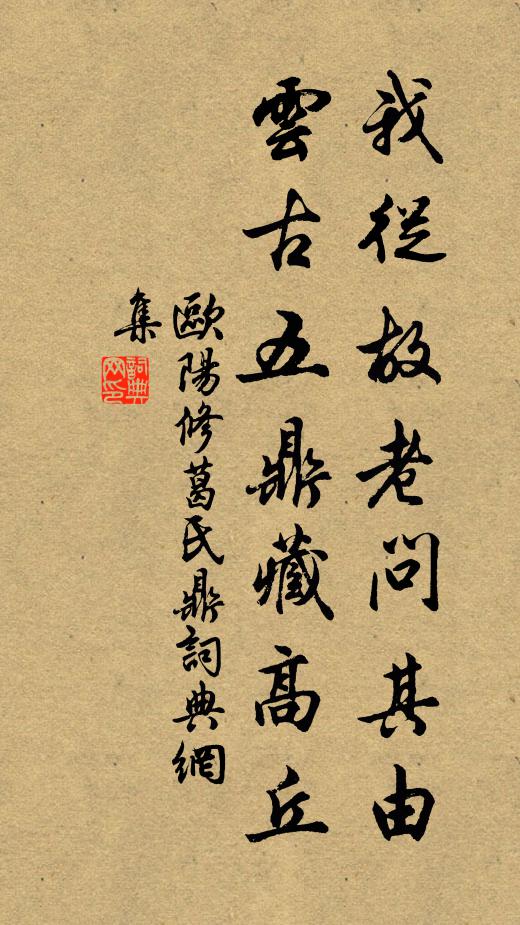 我從故老問其由
雲古五鼎藏高丘
歐陽修葛氏鼎詞典網
集
詞典
网印